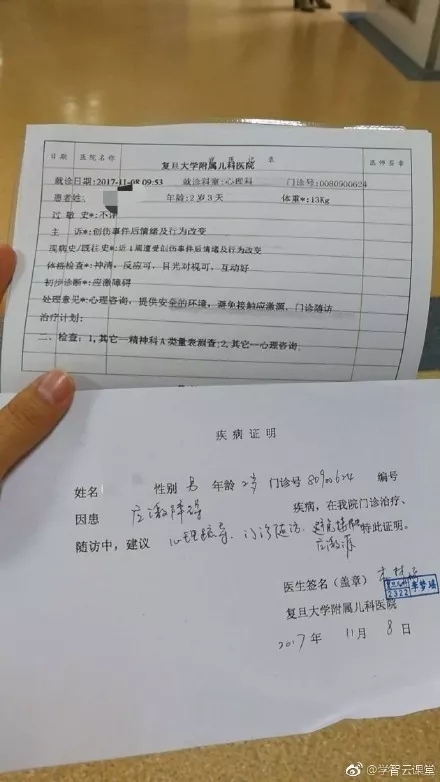 日期 医院名称 复旦大学附属儿科医院 医师签章
就诊日期:2017-11-08 09:53 就诊科室:心理科 门诊号:0080900624
患者姓 年龄:2岁3天 体重*:13Kg
过敏史*:不详
主 诉*:创伤事件后情绪及行为改变
现病史/既往史*:近1周遭受创伤事件后情绪及行为改变
体格检查*:神清，反应可，目光对视可，互动好
初步诊断*:应激障碍
处理意见*:心理咨询，提供安全的环境，避免接触应激源，门诊随访
治疗计划:
二、检查:1,其它--精神科A类量表测查;2,其它--心理咨询
疾病证明
姓名 性别 男 年龄 2岁 门诊号 80900624 编号
因患 应激障碍 疾病，在我院门诊治疗、
随访中，建议 心理疏导、门诊随访、避免接触 特此证明。
应激源
医生签名（盖章）
2322
复旦大学附属儿科医院
2017年 11月 8日
@学智云课堂